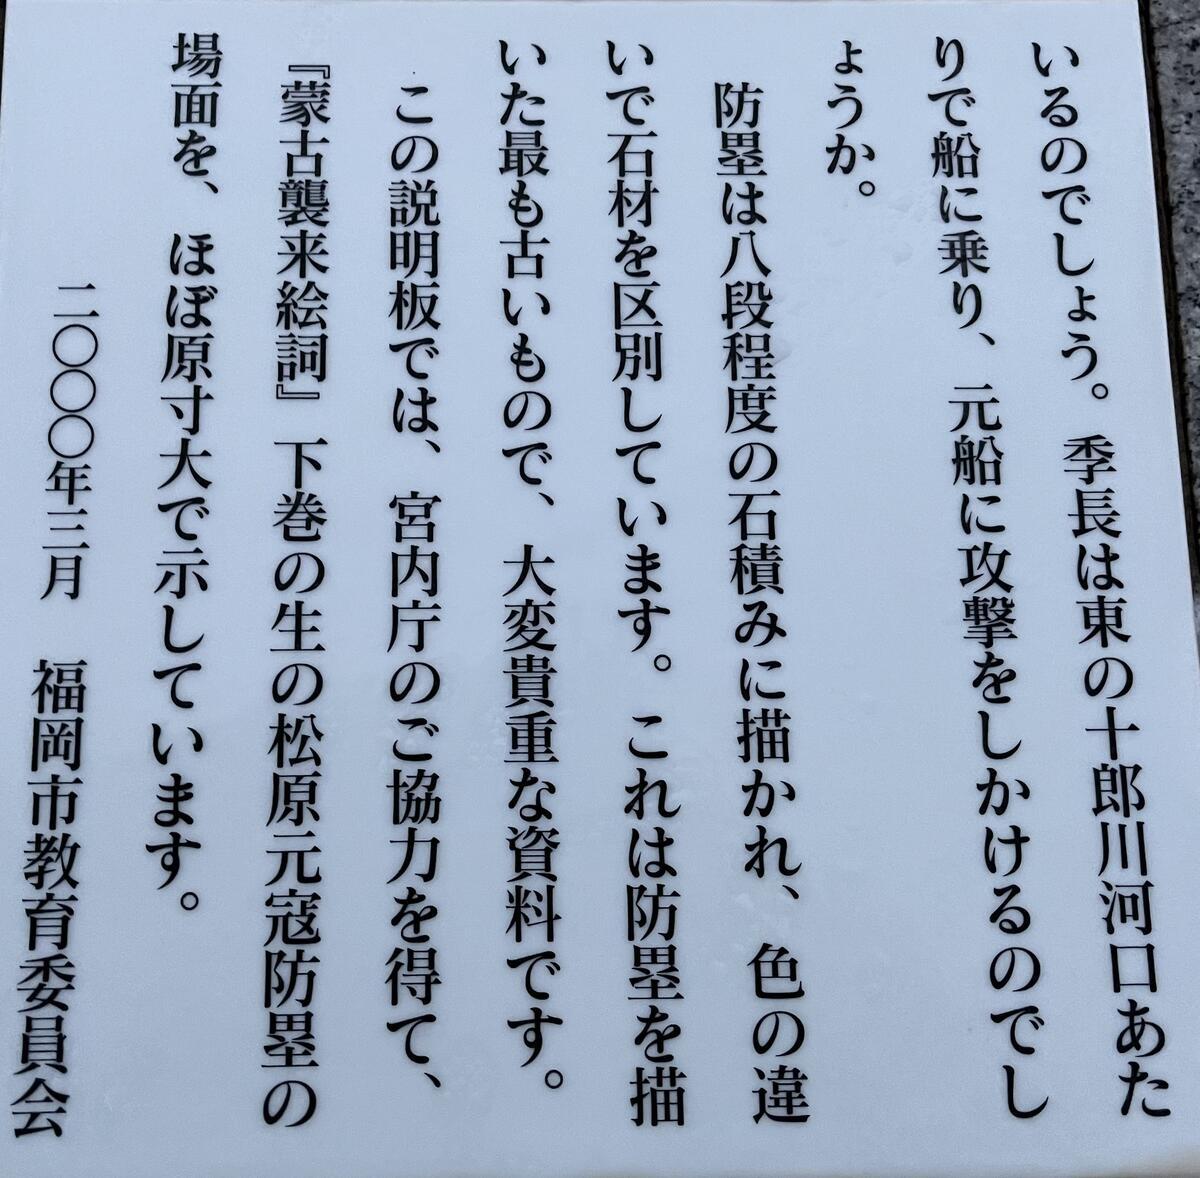 いるのでしょう。季長は東の十郎川河口あた
りで船に乗り、元船に攻撃をしかけるのでし
ょうか。
防塁は八段程度の石積みに描かれ、色の違
いで石材を区別しています。これは防塁を描
いた最も古いもので、大変貴重な資料です。
この説明板では、宮内庁のご協力を得て、
『蒙古襲来絵詞』下巻の生の松原元寇防塁の
場面を、ほぼ原寸大で示しています。
二〇〇〇年三月　福岡市教育委員会